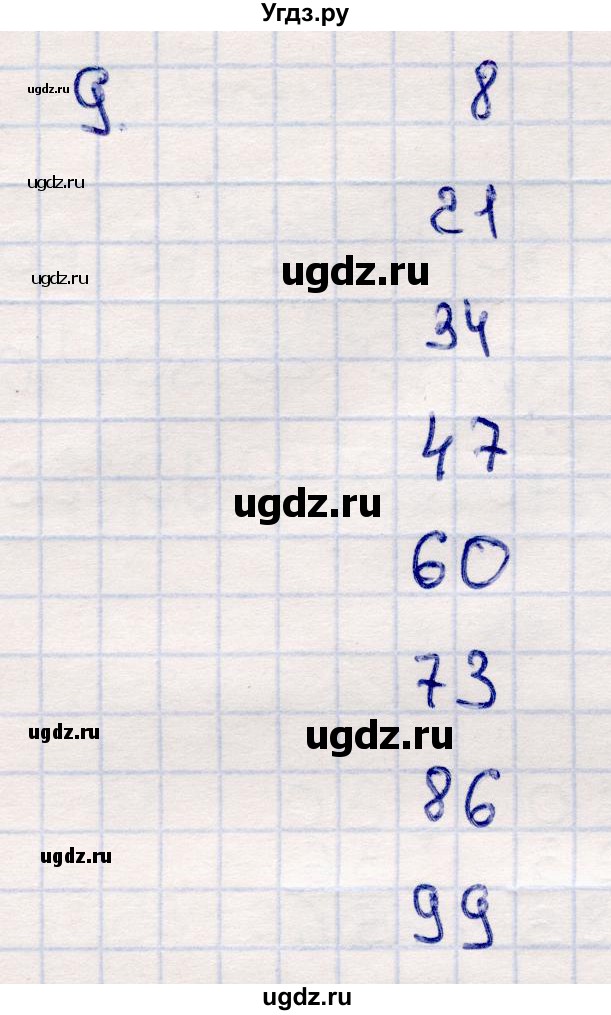 Угдз.ру
ugdz.ru
9.
8
ugdz.ru
21
ugdz.ru
ugdz.ru
34
47
ugdz.ru
60
73
ugdz.ru
ugdz.ru
86
ugdz.ru
99
ugdz.ru